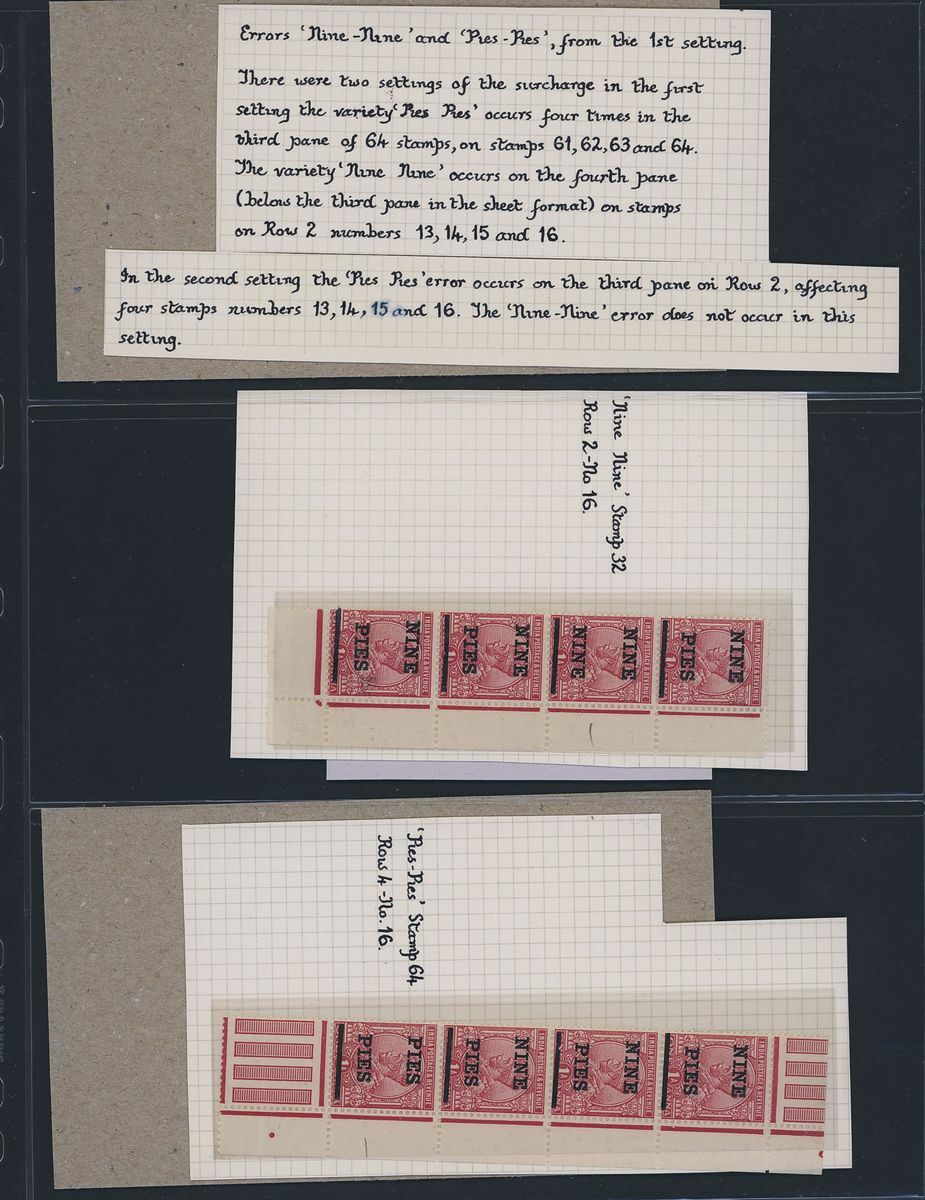 Errors 'Nine-Nine' and 'Pies-Pies', from the 1st setting.
There were two settings of the surcharge in the first
setting the variety 'Pies Pies' occurs four times in the
third pane of 64 stamps, on stamps 61, 62, 63 and 64.
The variety 'Nine Nine' occurs on the fourth pane
(below the third pane in the sheet format) on stamps
on Row 2 numbers 13, 14, 15 and 16.
In the second setting the 'Pies Pies' error occurs on the third pane on Row 2, affecting
four stamps numbers 13, 14, 15 and 16. The 'Nine-Nine' error does not occur in this
setting.
'Nine Nine' Stamp 32
Row 2-No 16.
INDIA POSTAGE & REVENUE
NINE
PIES
INDIA POSTAGE & REVENUE
NINE
NINE
INDIA POSTAGE & REVENUE
NINE
PIES
INDIA POSTAGE & REVENUE
NINE
PIES
'Pies-Pies' Stamp 64
Row 4-No. 16.
INDIA POSTAGE & REVENUE
NINE
PIES
INDIA POSTAGE & REVENUE
NINE
PIES
INDIA POSTAGE & REVENUE
NINE
PIES
INDIA POSTAGE & REVENUE
PIES
PIES